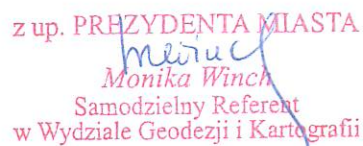 z up. PREZYDENTA MIASTA
Monika Winch
Samodzielny Referent
w Wydziale Geodezji i Kartografii